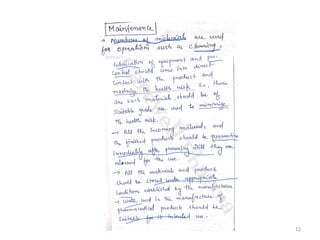 Maintenance
→ Numbers of materials are used
for operation such as cleaning,
lubrication of equipment and pest
control should come into direct
contact with the product and
maximize the health risk. So, these
are such materials should be of
suitable grade are used to minimize
the health risk.
→ All the incoming materials and
the finished products should be quarantine
immediately after processing till they are
released for the use.
→ All the materials and product
should be stored under appropriate
condition established by the manufacture
→ Water used in the manufacture of
pharmaceutical product should be
suitable for its intended use.
12